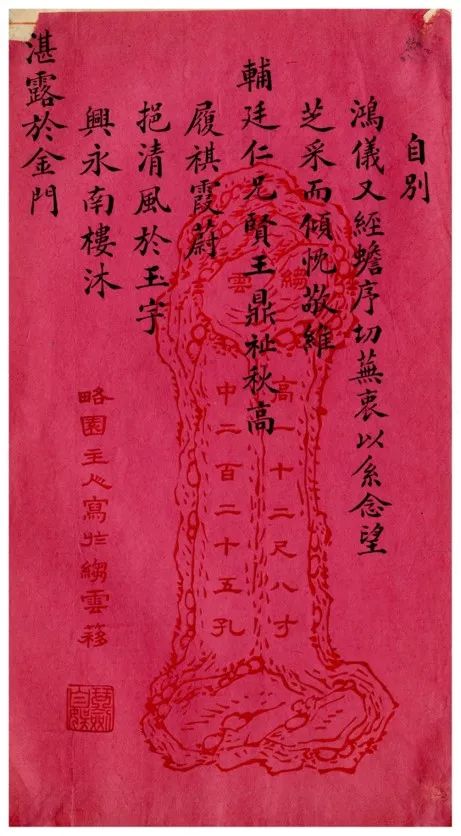 自別
鴻儀又經蟾序切蕪衷以系念望
芝采而傾忱敬維
輔廷仁兄賢王鼎祉秋高
履祺霞蔚
挹清風於玉宇
興永南樓沐
湛露於金門
縐雲
高一十二尺八寸
中二百二十五孔
略園主人寫於縐雲簃